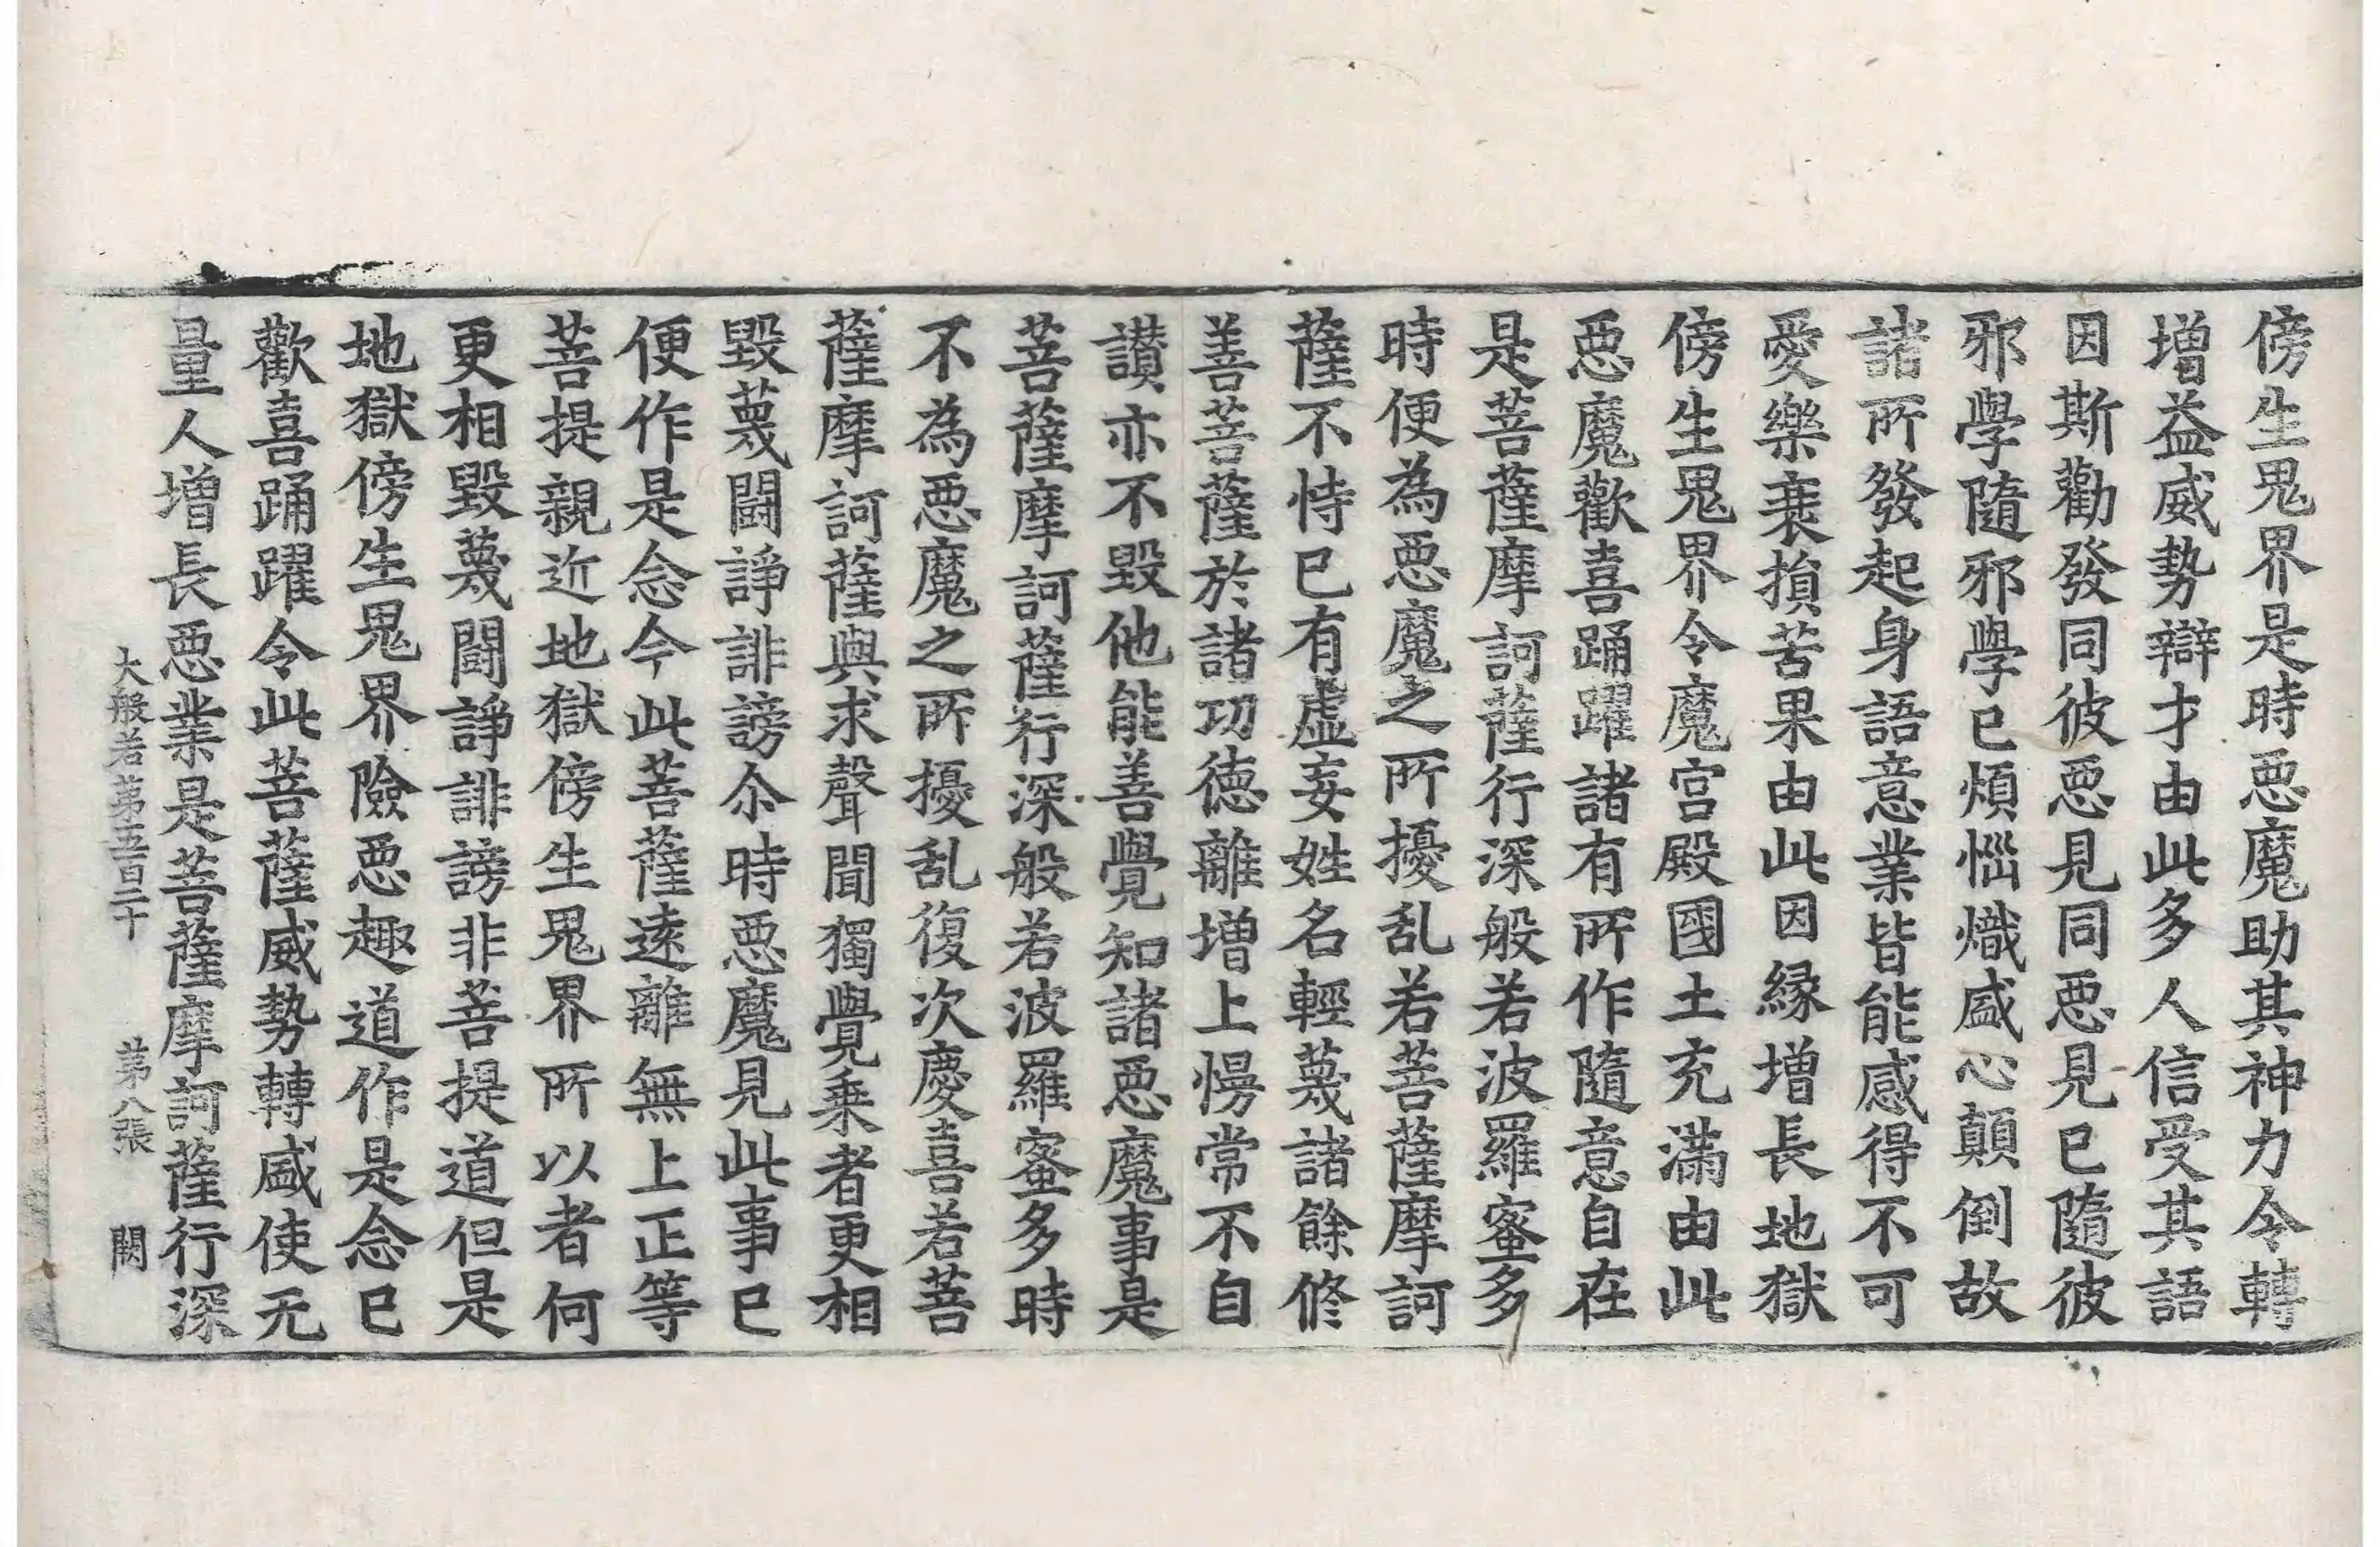 傍生鬼界是時惡魔助其神力令轉
増益威勢辯才由此多人信受其語
因斯勸發同彼惡見同惡見已隨彼
邪學隨邪學已煩惱熾盛心顛倒故
諸所發起身語意業皆能感得不可
愛樂衰損苦果由此因縁増長地獄
傍生鬼界令魔宫殿國土充滿由此
惡魔歡喜踊躍諸有所作隨意自在
是菩薩摩訶薩行深般若波羅蜜多
時便為惡魔之所擾乱若菩薩摩訶
薩不恃已有虛妄姓名輕蔑諸餘修
善菩薩於諸功德離増上慢常不自
讃亦不毀他能善覺知諸惡魔事是
菩薩摩訶薩行深般若波羅蜜多時
不為惡魔之所擾乱復次慶喜若菩
薩摩訶薩與求聲聞獨覺乗者更相
毀蔑鬪諍誹謗尒時惡魔見此事已
便作是念今此菩薩遠離無上正等
菩提親近地獄傍生鬼界所以者何
更相毀蔑鬪諍誹謗非菩提道但是
地獄傍生鬼界險惡趣道作是念已
歡喜踊躍令此菩薩威勢轉盛使无
量人増長惡業是菩薩摩訶薩行深
大般若第五百二十　第八張　闕